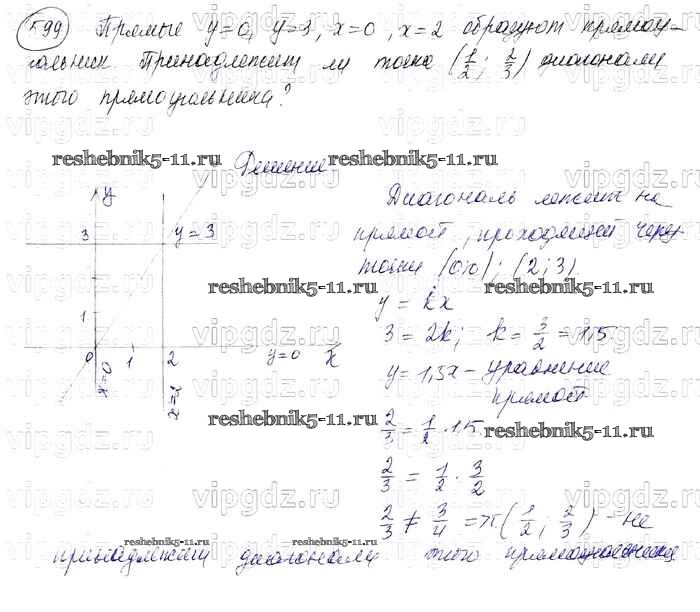 599 Прямые y=0, y=3, x=0, x=2 образуют прямоу-
гольник. Принадлежит ли точка (1/2; 2/3) диагонали
этого прямоугольника?
vipgdz.ru vipgdz.ru vipgdz.ru
reshebnik5-11.ru Решение reshebnik5-11.ru
y
3
y=3
1
0 1 2 y=0 x
x=0
x=2
Диагональ лежит на
прямой, проходящей через
точки (0;0); (2;3)
reshebnik5-11.ru reshebnik5-11.ru
y = kx
vipgdz.ru vipgdz.ru vipgdz.ru
3 = 2k; k = 3/2 = 1,5
y = 1,5x - уравнение
прямой
reshebnik5-11.ru
2/3 = 1/2 · 1,5
reshebnik5-11.ru
2/3 = 1/2 · 3/2
vipgdz.ru vipgdz.ru vipgdz.ru
2/3 ≠ 3/4 => т(1/2; 2/3) - не
reshebnik5-11.ru reshebnik5-11.ru
принадлежит диагонали этого прямоугольника
vipgdz.ru vipgdz.ru vipgdz.ru